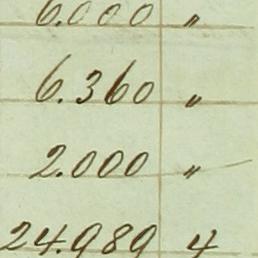 6.000 "
6.360 "
2.000 "
24.989 4